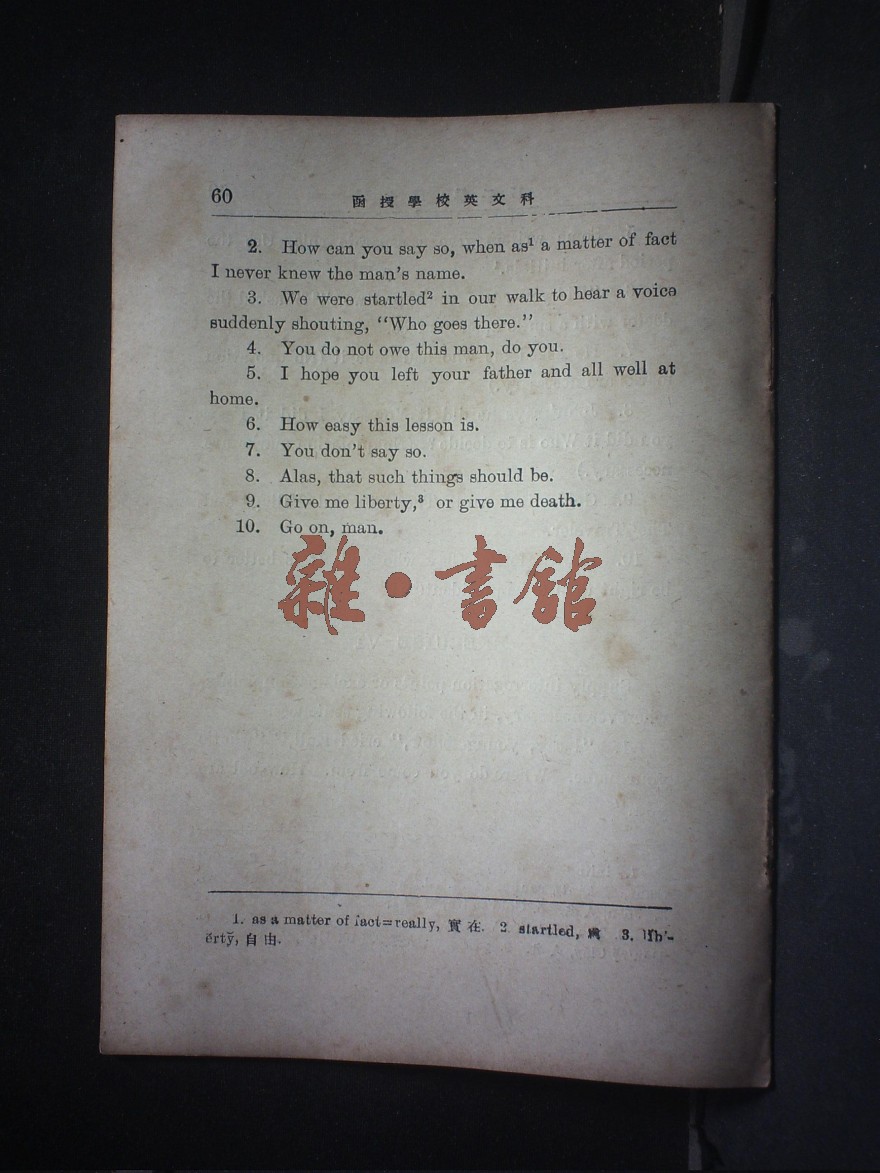 60 函授學校英文科
2. How can you say so, when as¹ a matter of fact
I never knew the man's name.
3. We were startled² in our walk to hear a voice
suddenly shouting, “Who goes there.”
4. You do not owe this man, do you.
5. I hope you left your father and all well at
home.
6. How easy this lesson is.
7. You don't say so.
8. Alas, that such things should be.
9. Give me liberty,³ or give me death.
10. Go on, man.
雜·書館
1. as a matter of fact=really, 實在. 2. startled, 3. lĭb'-
ẽrtў, 自由.